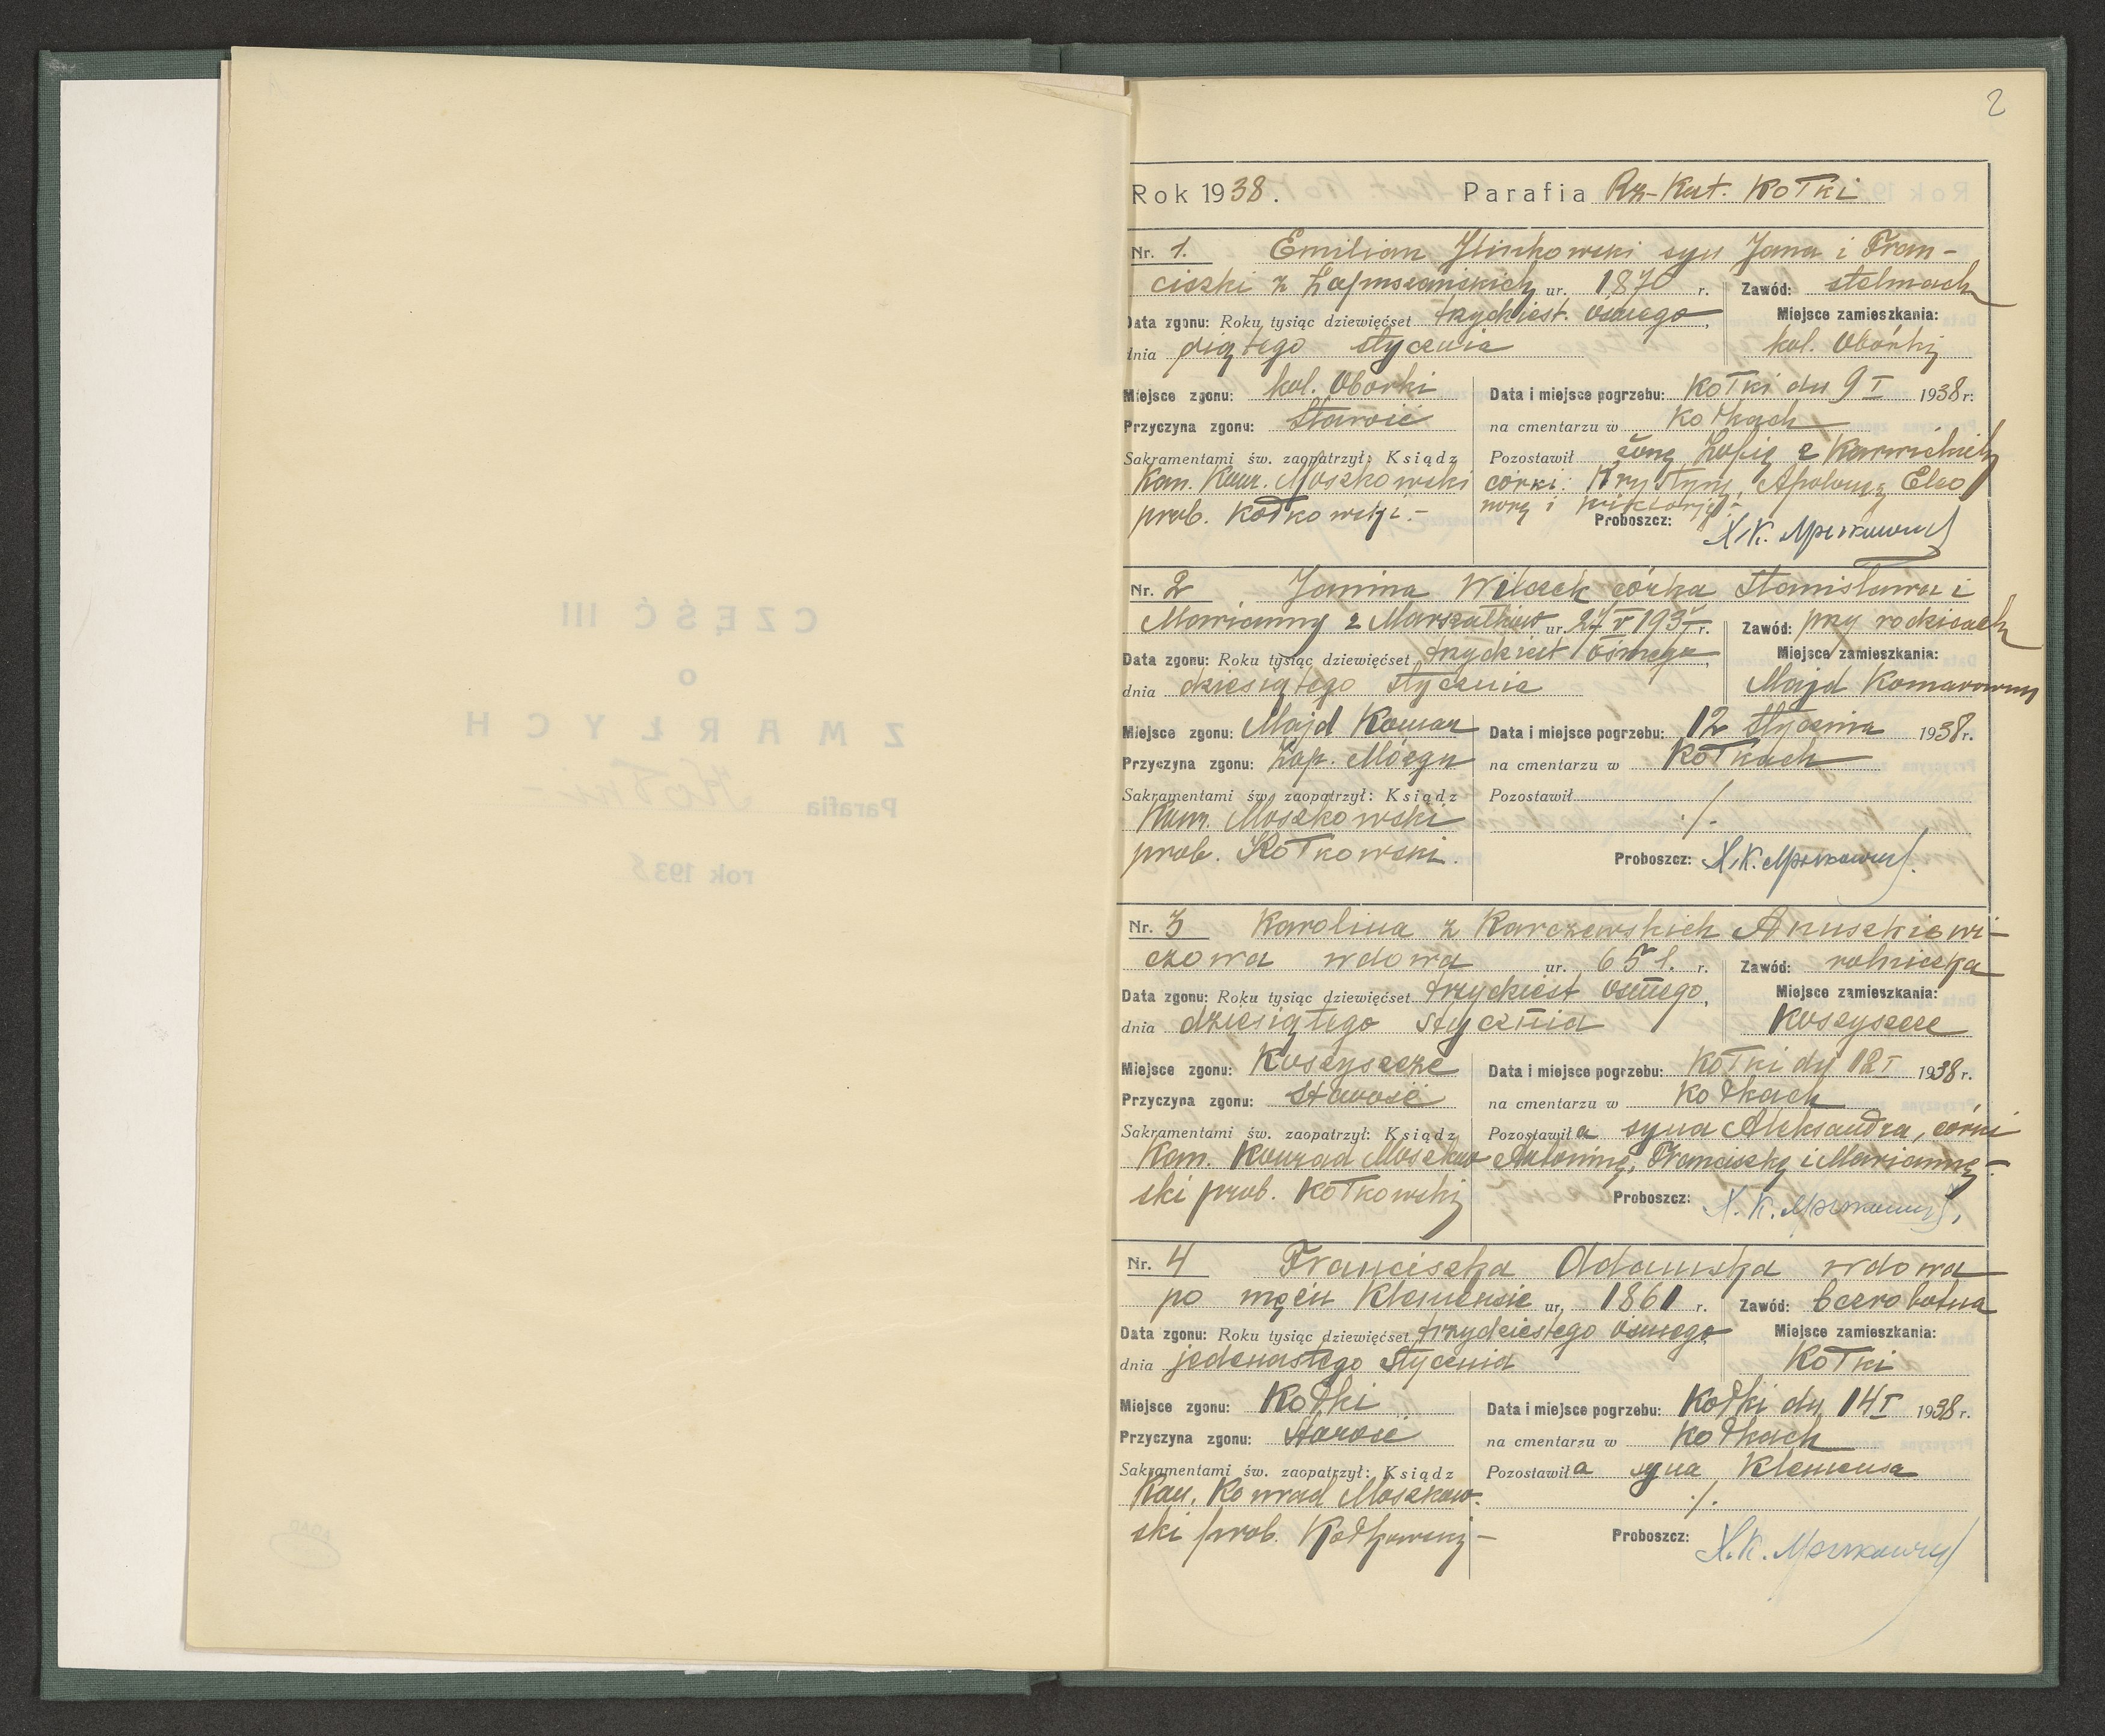 2
Rok 1938. Parafia Rz-Kat. Kołki
Nr. 1. Emilian syn Jana i Fran-
ciszki z ur. 1870 r. Zawód: stelmach
Data zgonu: Roku tysiąc dziewięćset trzydziest. ósmego,
Miejsce zamieszkania:
dnia piątego stycznia kol. Obórki
Miejsce zgonu: kol. Oborki
Przyczyna zgonu: Starość
Sakramentami św. zaopatrzył: Ksiądz
Kan. Konr. Moszkowski
prob. Kołkowski.-
Data i miejsce pogrzebu: Kołki dn 9 I 1938 r.
na cmentarzu w Kołkach
Pozostawił żonę Zofię z
córki: Krystynę, Apolonję Eleo
norę i Wiktorję.-
Proboszcz:
Nr. 2 Janina Wilczek córka Stanisława i
Marianny z Marszałków ur. 193 r. Zawód: przy rodzicach
Data zgonu: Roku tysiąc dziewięćset trzydziest ósmego,
Miejsce zamieszkania:
dnia dziesiątego stycznia Majd
Miejsce zgonu: Majd Komar
Przyczyna zgonu: Zap. Mózgu
Sakramentami św. zaopatrzył: Ksiądz
Konr. Moszkowski
prob. Kołkowski.
Data i miejsce pogrzebu: 12 stycznia 1938 r.
na cmentarzu w Kołkach
Pozostawił
./.
Proboszcz:
Nr. 3 Karolina z Karczewskich Anuszkiewi-
czowa wdowa ur. 65 l. r. Zawód: rolniczka
Data zgonu: Roku tysiąc dziewięćset trzydziest ósmego,
Miejsce zamieszkania:
dnia dziesiątego stycznia Koszyszcze
Miejsce zgonu: Koszyszcze
Przyczyna zgonu: Starość
Sakramentami św. zaopatrzył: Ksiądz
Kan. Konrad Moszkow
ski prob. Kołkowski
Data i miejsce pogrzebu: Kołki dn 12 I 1938 r.
na cmentarzu w Kołkach
Pozostawiła syna Aleksandra, córki
Antoninę, Franciszkę i Mariannę.-
Proboszcz:
Nr. 4 Franciszka Adamska wdowa
po mężu Klemensie ur. 1861 r. Zawód: bezrobotna
Data zgonu: Roku tysiąc dziewięćset trzydziestego ósmego
Miejsce zamieszkania:
dnia jedenastego stycznia Kołki
Miejsce zgonu: Kołki
Przyczyna zgonu: Starość
Sakramentami św. zaopatrzył: Ksiądz
Kan. Konrad Moszkow-
ski prob. Kołkowski-
Data i miejsce pogrzebu: Kołki dn 14 I 1938 r.
na cmentarzu w Kołkach
Pozostawiła syna Klemensa
./.
Proboszcz:
CZĘŚĆ III
O
ZMARŁYCH
Parafia Kołki-
rok 1938